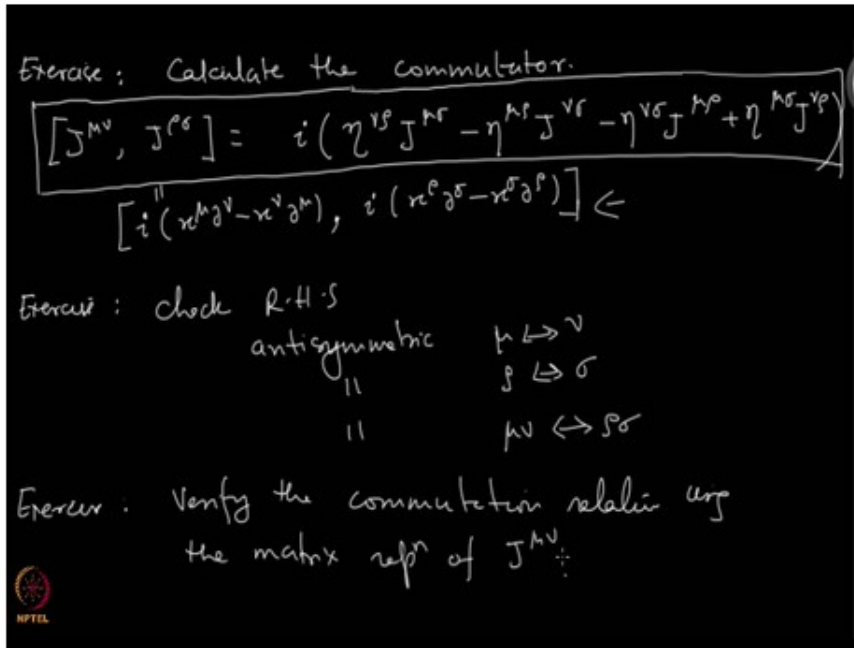 Exercise : Calculate the commutator.
[J^{μν}, J^{ρσ}] = i(η^{νρ} J^{μσ} − η^{μρ} J^{νσ} − η^{νσ} J^{μρ} + η^{μσ} J^{νρ})
"
[i(x^μ ∂^ν − x^ν ∂^μ), i(x^ρ ∂^σ − x^σ ∂^ρ)] ⇐
Exercise : check R.H.S
antisymmetric μ ↔ ν
" ρ ↔ σ
" μν ↔ ρσ
Exercise : Verify the commutation relation using
the matrix rep^n of J^{μν}
NPTEL